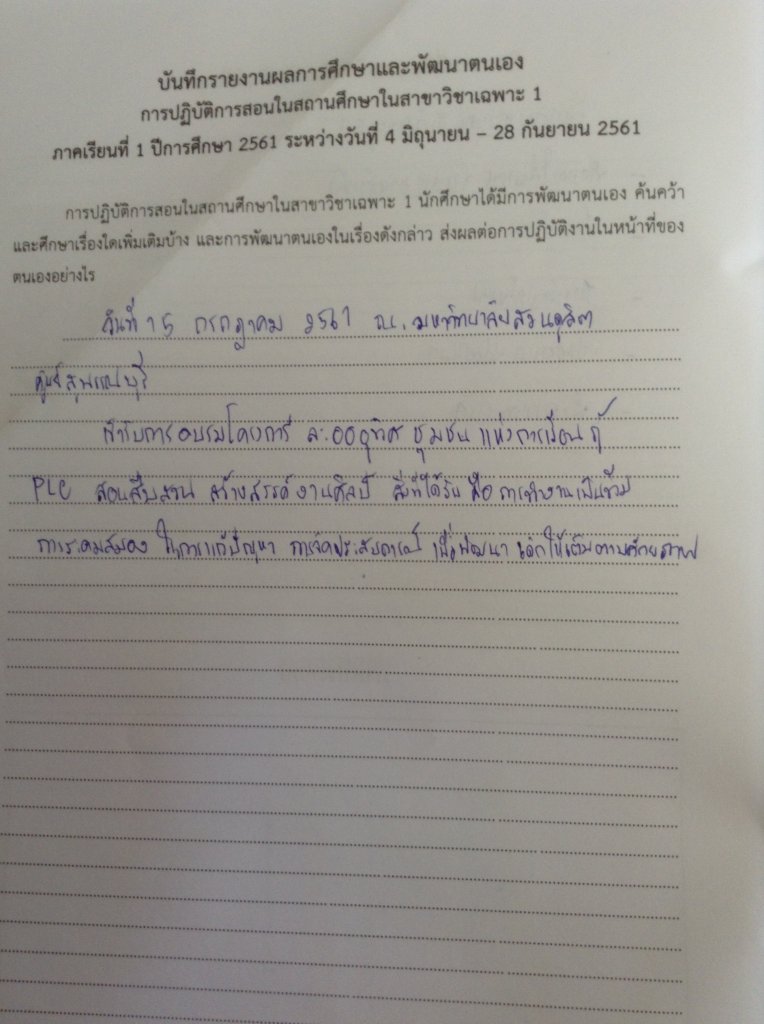 บันทึกรายงานผลการศึกษาและพัฒนาตนเอง
การปฏิบัติการสอนในสถานศึกษาในสาขาวิชาเฉพาะ 1
ภาคเรียนที่ 1 ปีการศึกษา 2561 ระหว่างวันที่ 4 มิถุนายน – 28 กันยายน 2561
การปฏิบัติการสอนในสถานศึกษาในสาขาวิชาเฉพาะ 1 นักศึกษาได้มีการพัฒนาตนเอง ค้นคว้า
และศึกษาเรื่องใดเพิ่มเติมบ้าง และการพัฒนาตนเองในเรื่องดังกล่าว ส่งผลต่อการปฏิบัติงานในหน้าที่ของ
ตนเองอย่างไร
วันที่ 15 กรกฎาคม 2561 ณ. มหาวิทยาลัยสวนดุสิต
ศูนย์สุพรรณบุรี
เข้ารับการอบรมโครงการ ละอออุทิศ ชุมชน แห่งการเรียนรู้
PLC สอนสืบสวน สร้างสรรค์งานศิลป์ สิ่งที่ได้รับ คือ การทำงานเป็นทีม
การระดมสมอง ในการแก้ปัญหา การจัดประสบการณ์ เพื่อพัฒนา เด็กให้เต็มตามศักยภาพ